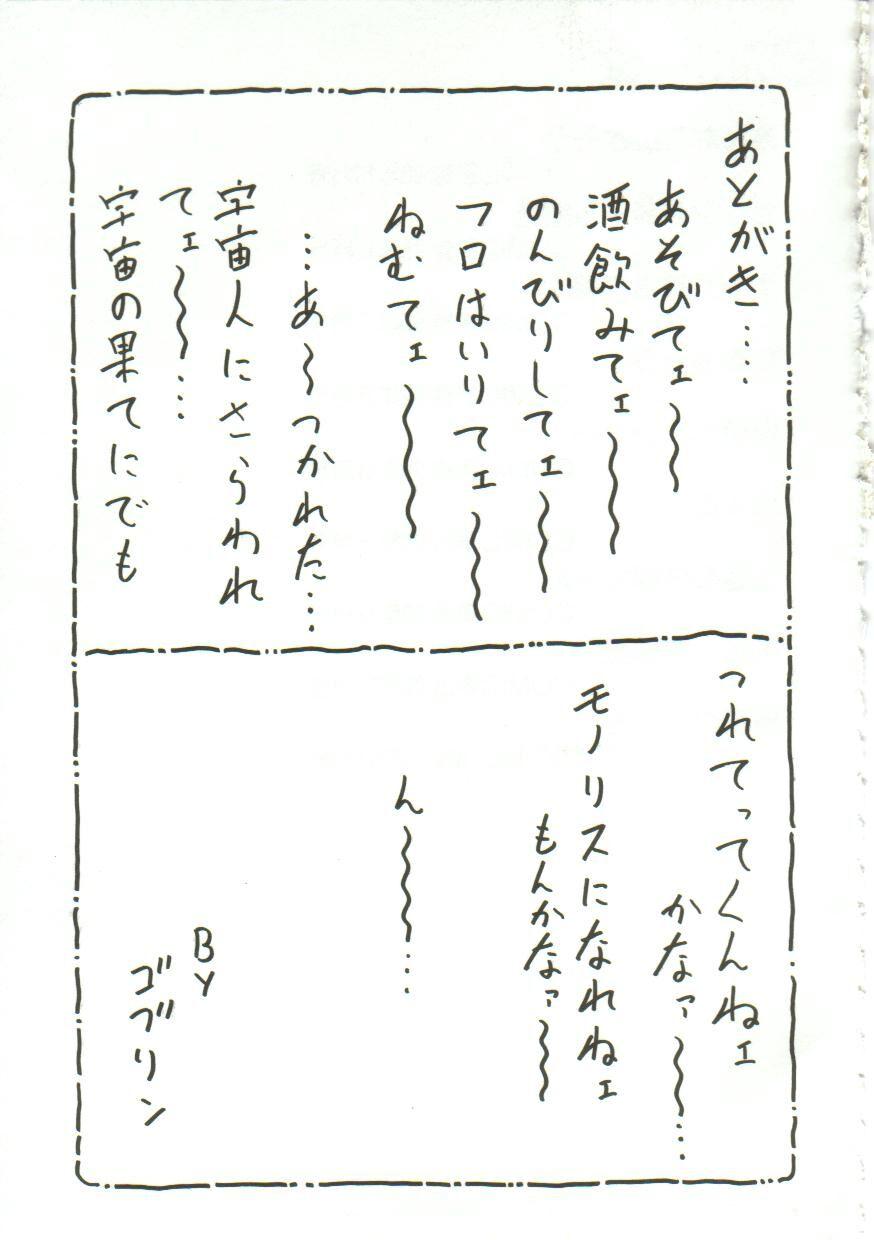 あとがき‥‥
あそびてェ～
酒飲みてェ～
のんびりしてェ～
フロはいりてェ～
ねむてェ～
…あ～つかれた…
宇宙人にさらわれ
てェ～…
宇宙の果てにでも
つれてってくんねェ
かなァ～…
モノリスになれねェ
もんかなァ～
ん～…
By
ゴブリン